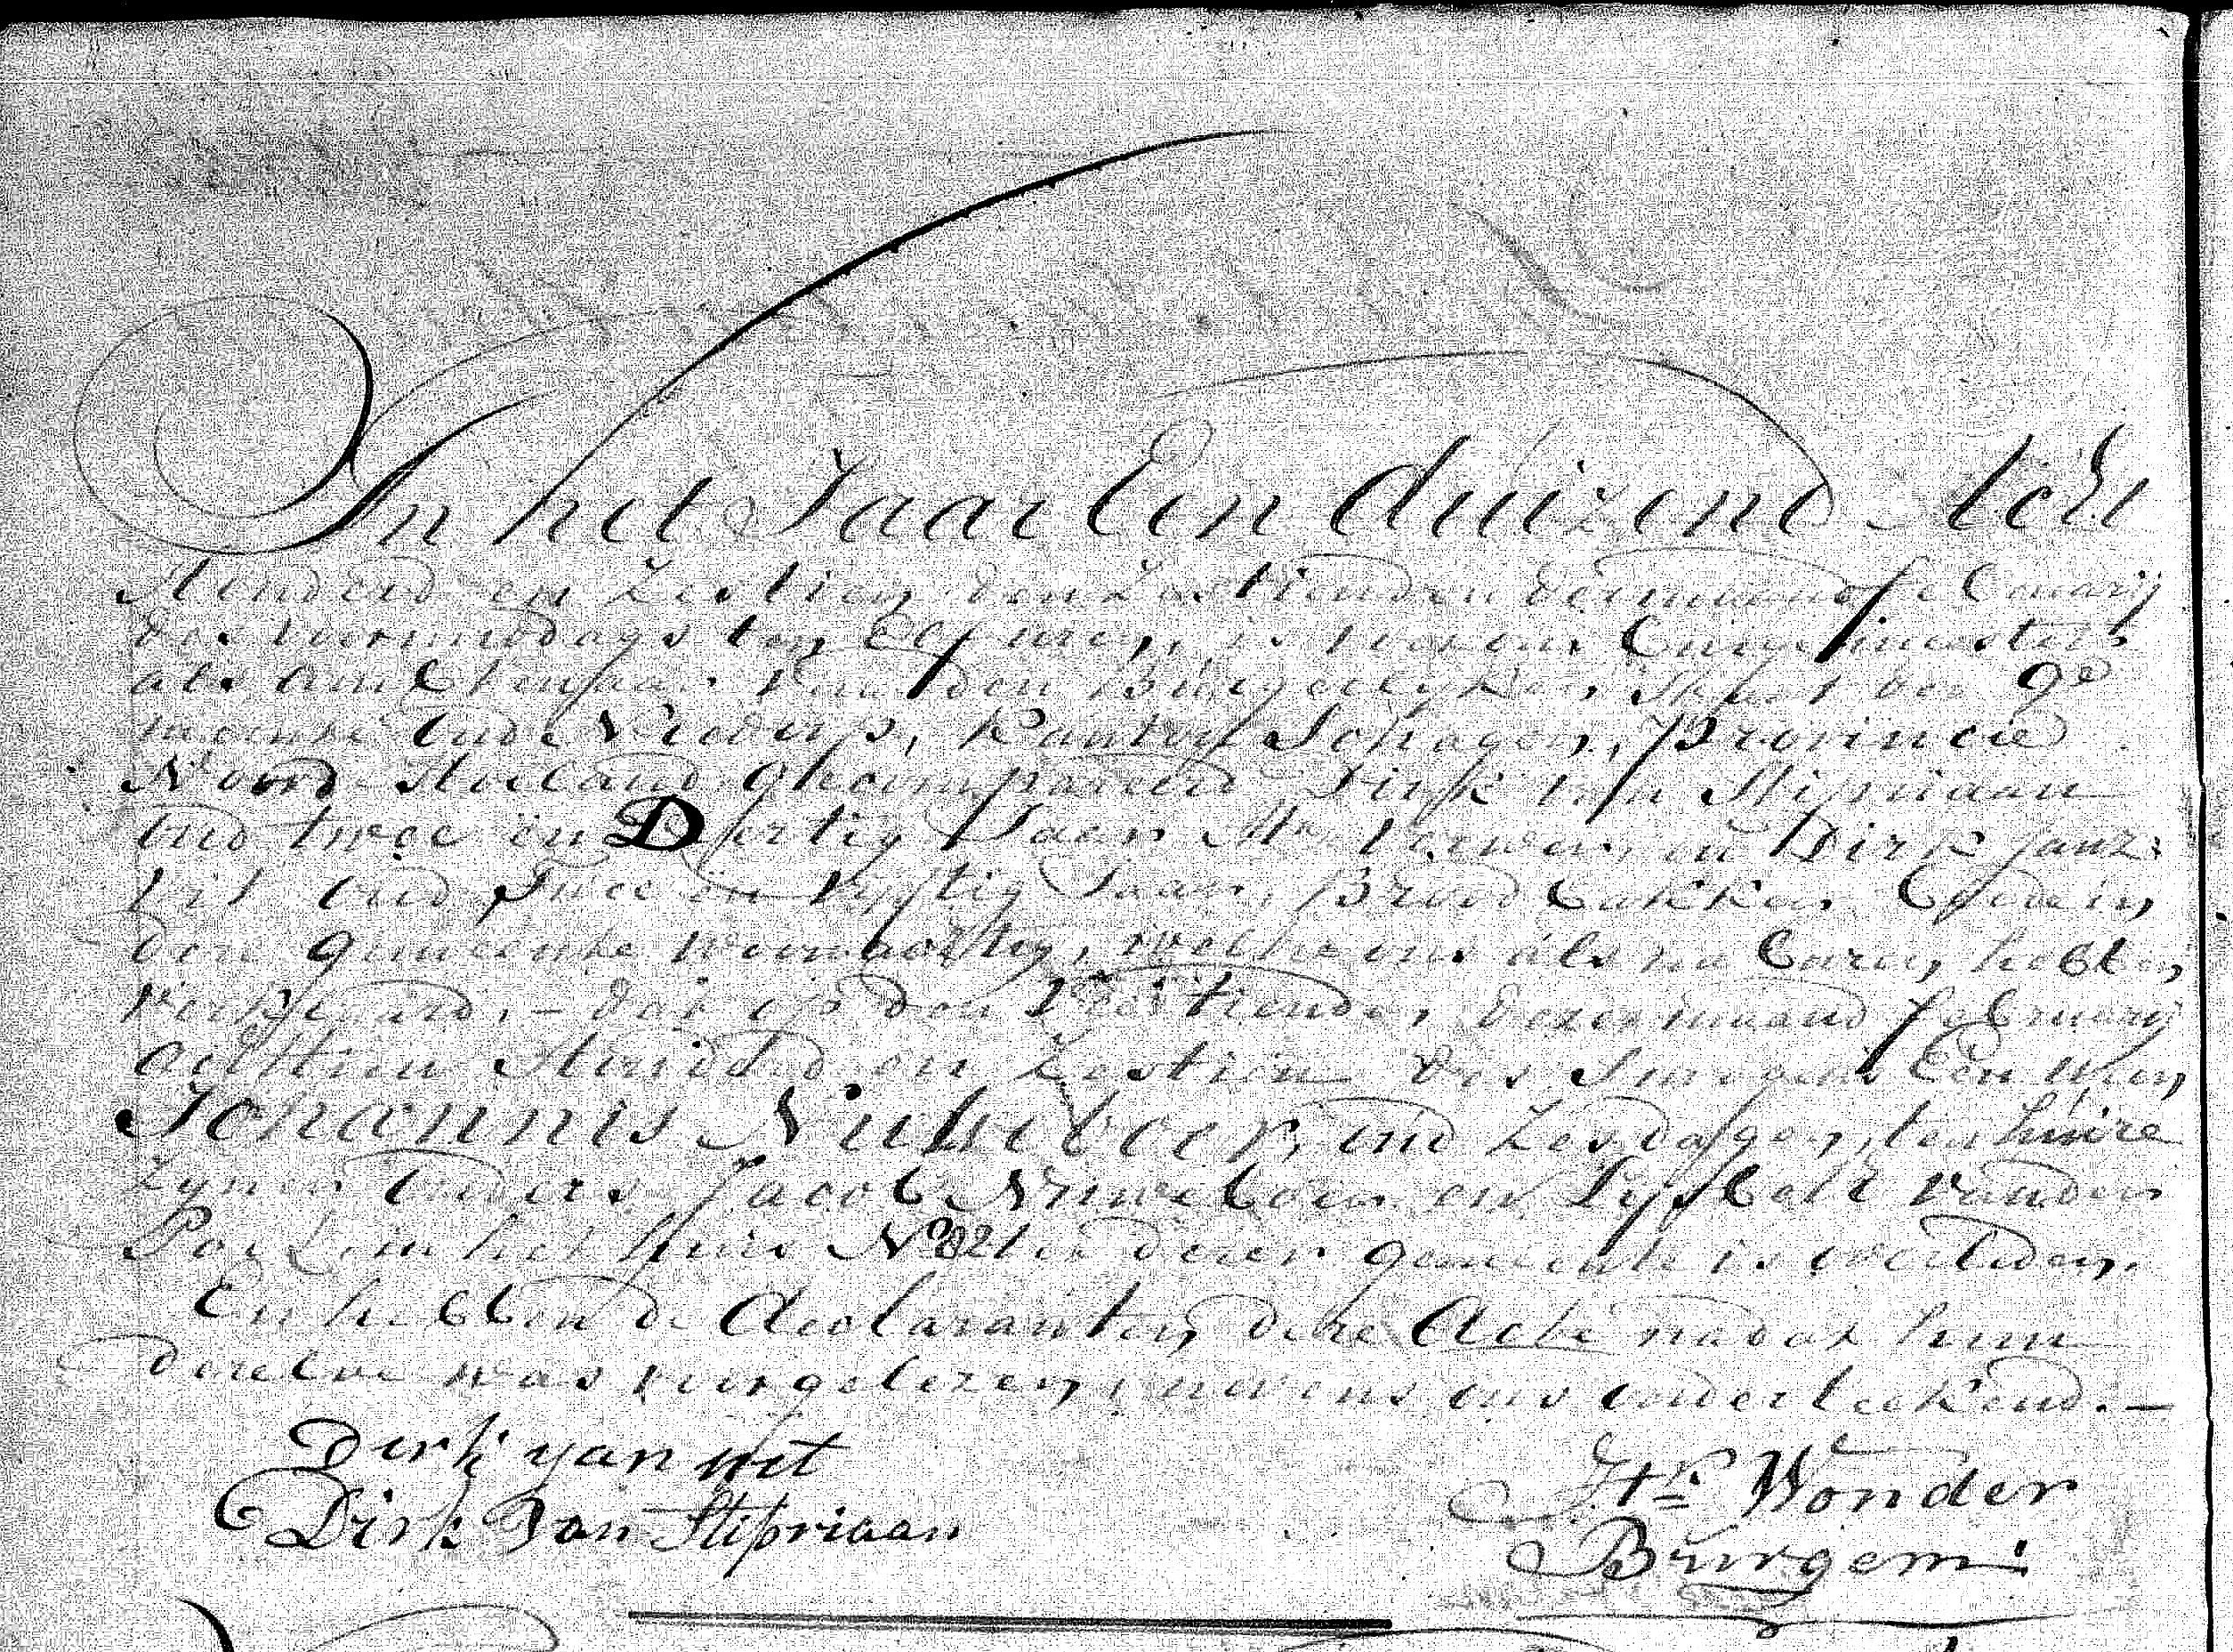 In het Jaar Een duizend Acht
Honderd en Zestien den Zestienden der maand february
des voormiddags ten Elf uren, is voor ons Burgemeester
als Ambtenaar van den Burgerlyken Staat der Ge
meente Oude Niedorp, Kanton Schagen, Provincie
Noord Holland gecompareerd Dirk van Stipriaan
oud twee en Dertig Jaar en Dirk Janz:
Wit oud Twee en vyftig Jaar, Brood bakker Beide in
deze gemeente woonachtig, welke ons als na buren hebben
verklaard, - dat op den veertienden dezer maand february
achttien Honderd en Zestien des Smorgens Een uren
Johannis Nieuweboer, oud Zes dagen, ten huize
zyner ouders Jacob Nieuweboer en Lysbeth van der
in het huis No 82 dezer gemeente is overleden.
En hebben de declaranten deze Acte na dat hun
dezelve was voorgelezen, nevens ons onderteekend. -
Derk yan wit
Dirk Van Stipriaan
Wonder
Burgem: